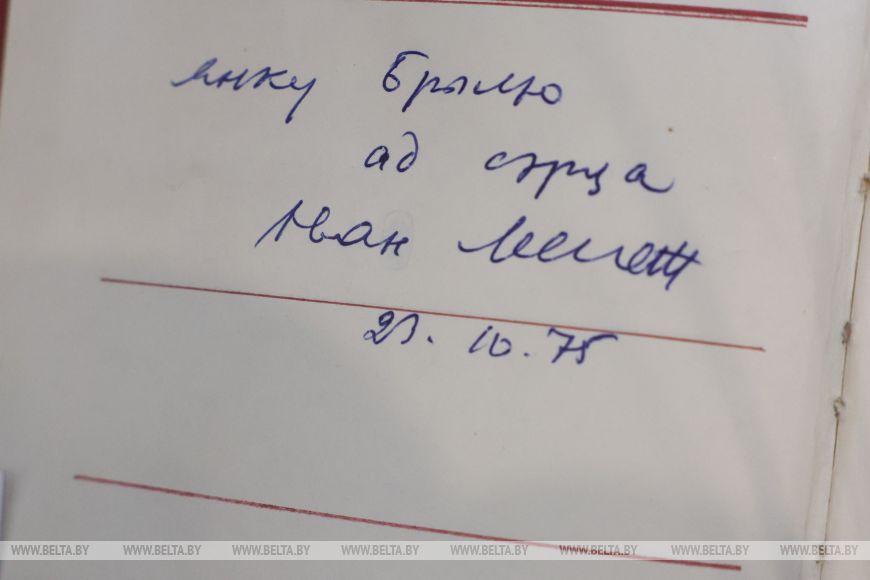 Янку Брылю
ад сэрца
Іван Мележ
23. 10. 75
WWW.BELTA.BY WWW.BELTA.BY WWW.BELTA.BY WWW.BELTA.BY WWW.BELTA.BY WWW.BELTA.BY WWW.BELTA.BY WWW.BELTA.BY